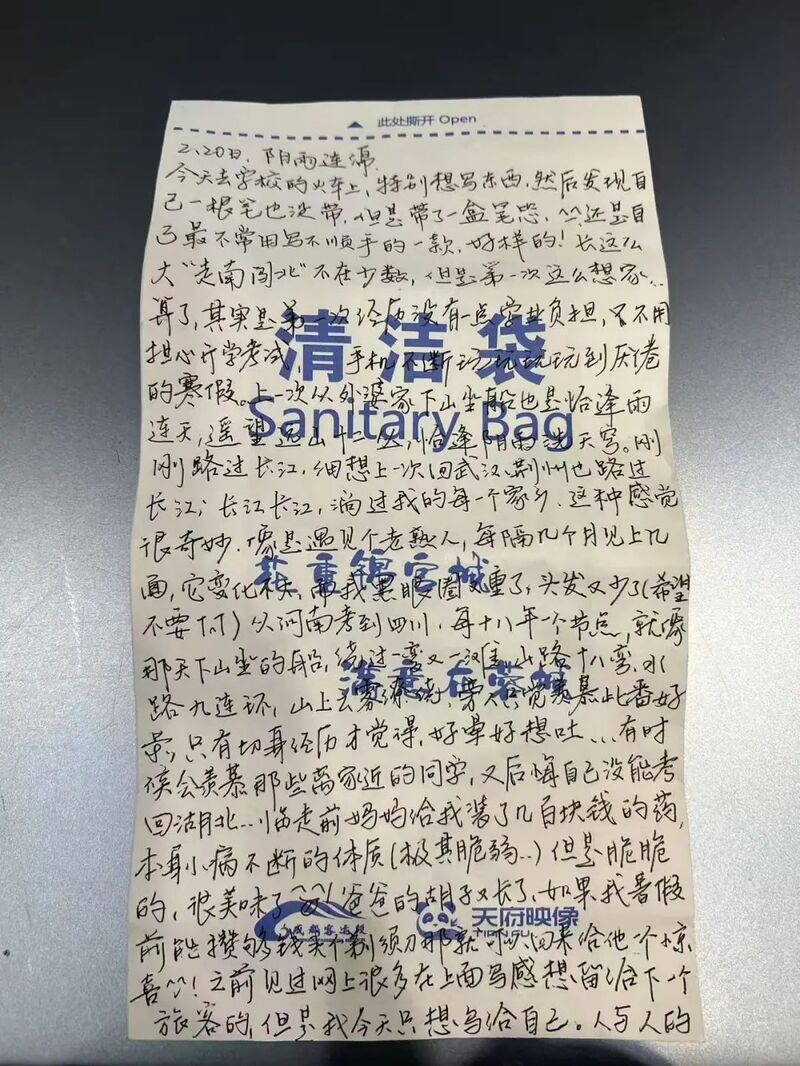 ▲ 此处撕开 Open
2.20日. 阴雨连绵.
今天去学校的火车上, 特别想写东西, 然后发现自
己一根笔也没带, 但是带了一盒笔芯, ^^还是自
己最不常用写不顺手的一款, 好样的! 长这么
大“走南闯北”不在少数, 但是第一次这么想家..
算了, 其实是第一次经历没有一点学业负担, 又不用
清洁袋
担心开学考试, 手机不断玩玩玩玩到厌倦
的寒假。上一次从外婆家下山坐船也是恰逢雨
Sanitary Bag
连天, 遥望远山十二丛, 恰逢阴雨连天写。刚
刚路过长江, 细想上一次回武汉.荆州也路过
长江; 长江长江, 淌过我的每一个家乡. 这种感觉
很奇妙. 像是遇见个老熟人, 每隔几个月见上几
花重锦官城
面, 它变化不大, 而我黑眼圈又重了, 头发又少了(希望
不要TAT) 从河南考到四川, 每十八年一个节点, 就像
那天下山坐的船, 绕过一弯又一滩, 山路十八弯. 水
满意在蓉城
路九连环, 山上云雾缭绕, 旁人只觉羡慕此番好
景, 只有切身经历才觉得, 好晕好想吐... 有时
候会羡慕那些离家近的同学, 又后悔自己没能考
回湖北... 临走前妈妈给我装了几百块钱的药,
本身小病不断的体质(极其脆弱..) 但是脆脆
的, 很美味了^^! 爸爸的胡子又长了. 如果我暑假
成都客运段 天府映像
前能攒够钱买个剃须刀那就可以回来给他一个惊
喜^^! 之前见过网上很多在上面写感想留给下一个
旅客的, 但是我今天只想写给自己。人与人的